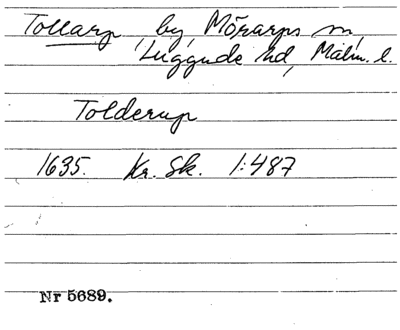 Tollarp, by, Mörarps sn,
Luggude hd, Malm. l.
Tolderup
1635. Kr. Sk. 1:487
Nr 5689.